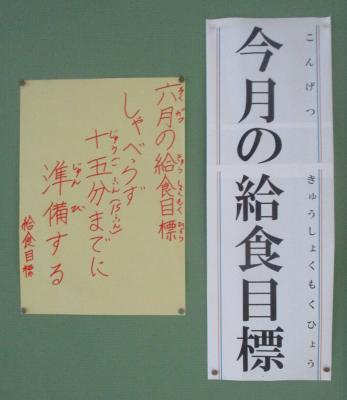 今月の給食目標
こんげつ きゅうしょくもくひょう
六月の給食目標
ろくがつ きゅうしょくもくひょう
しゃべらず
十五分までに
じゅうごふん(15ふん)
準備する
じゅんび
給食目標